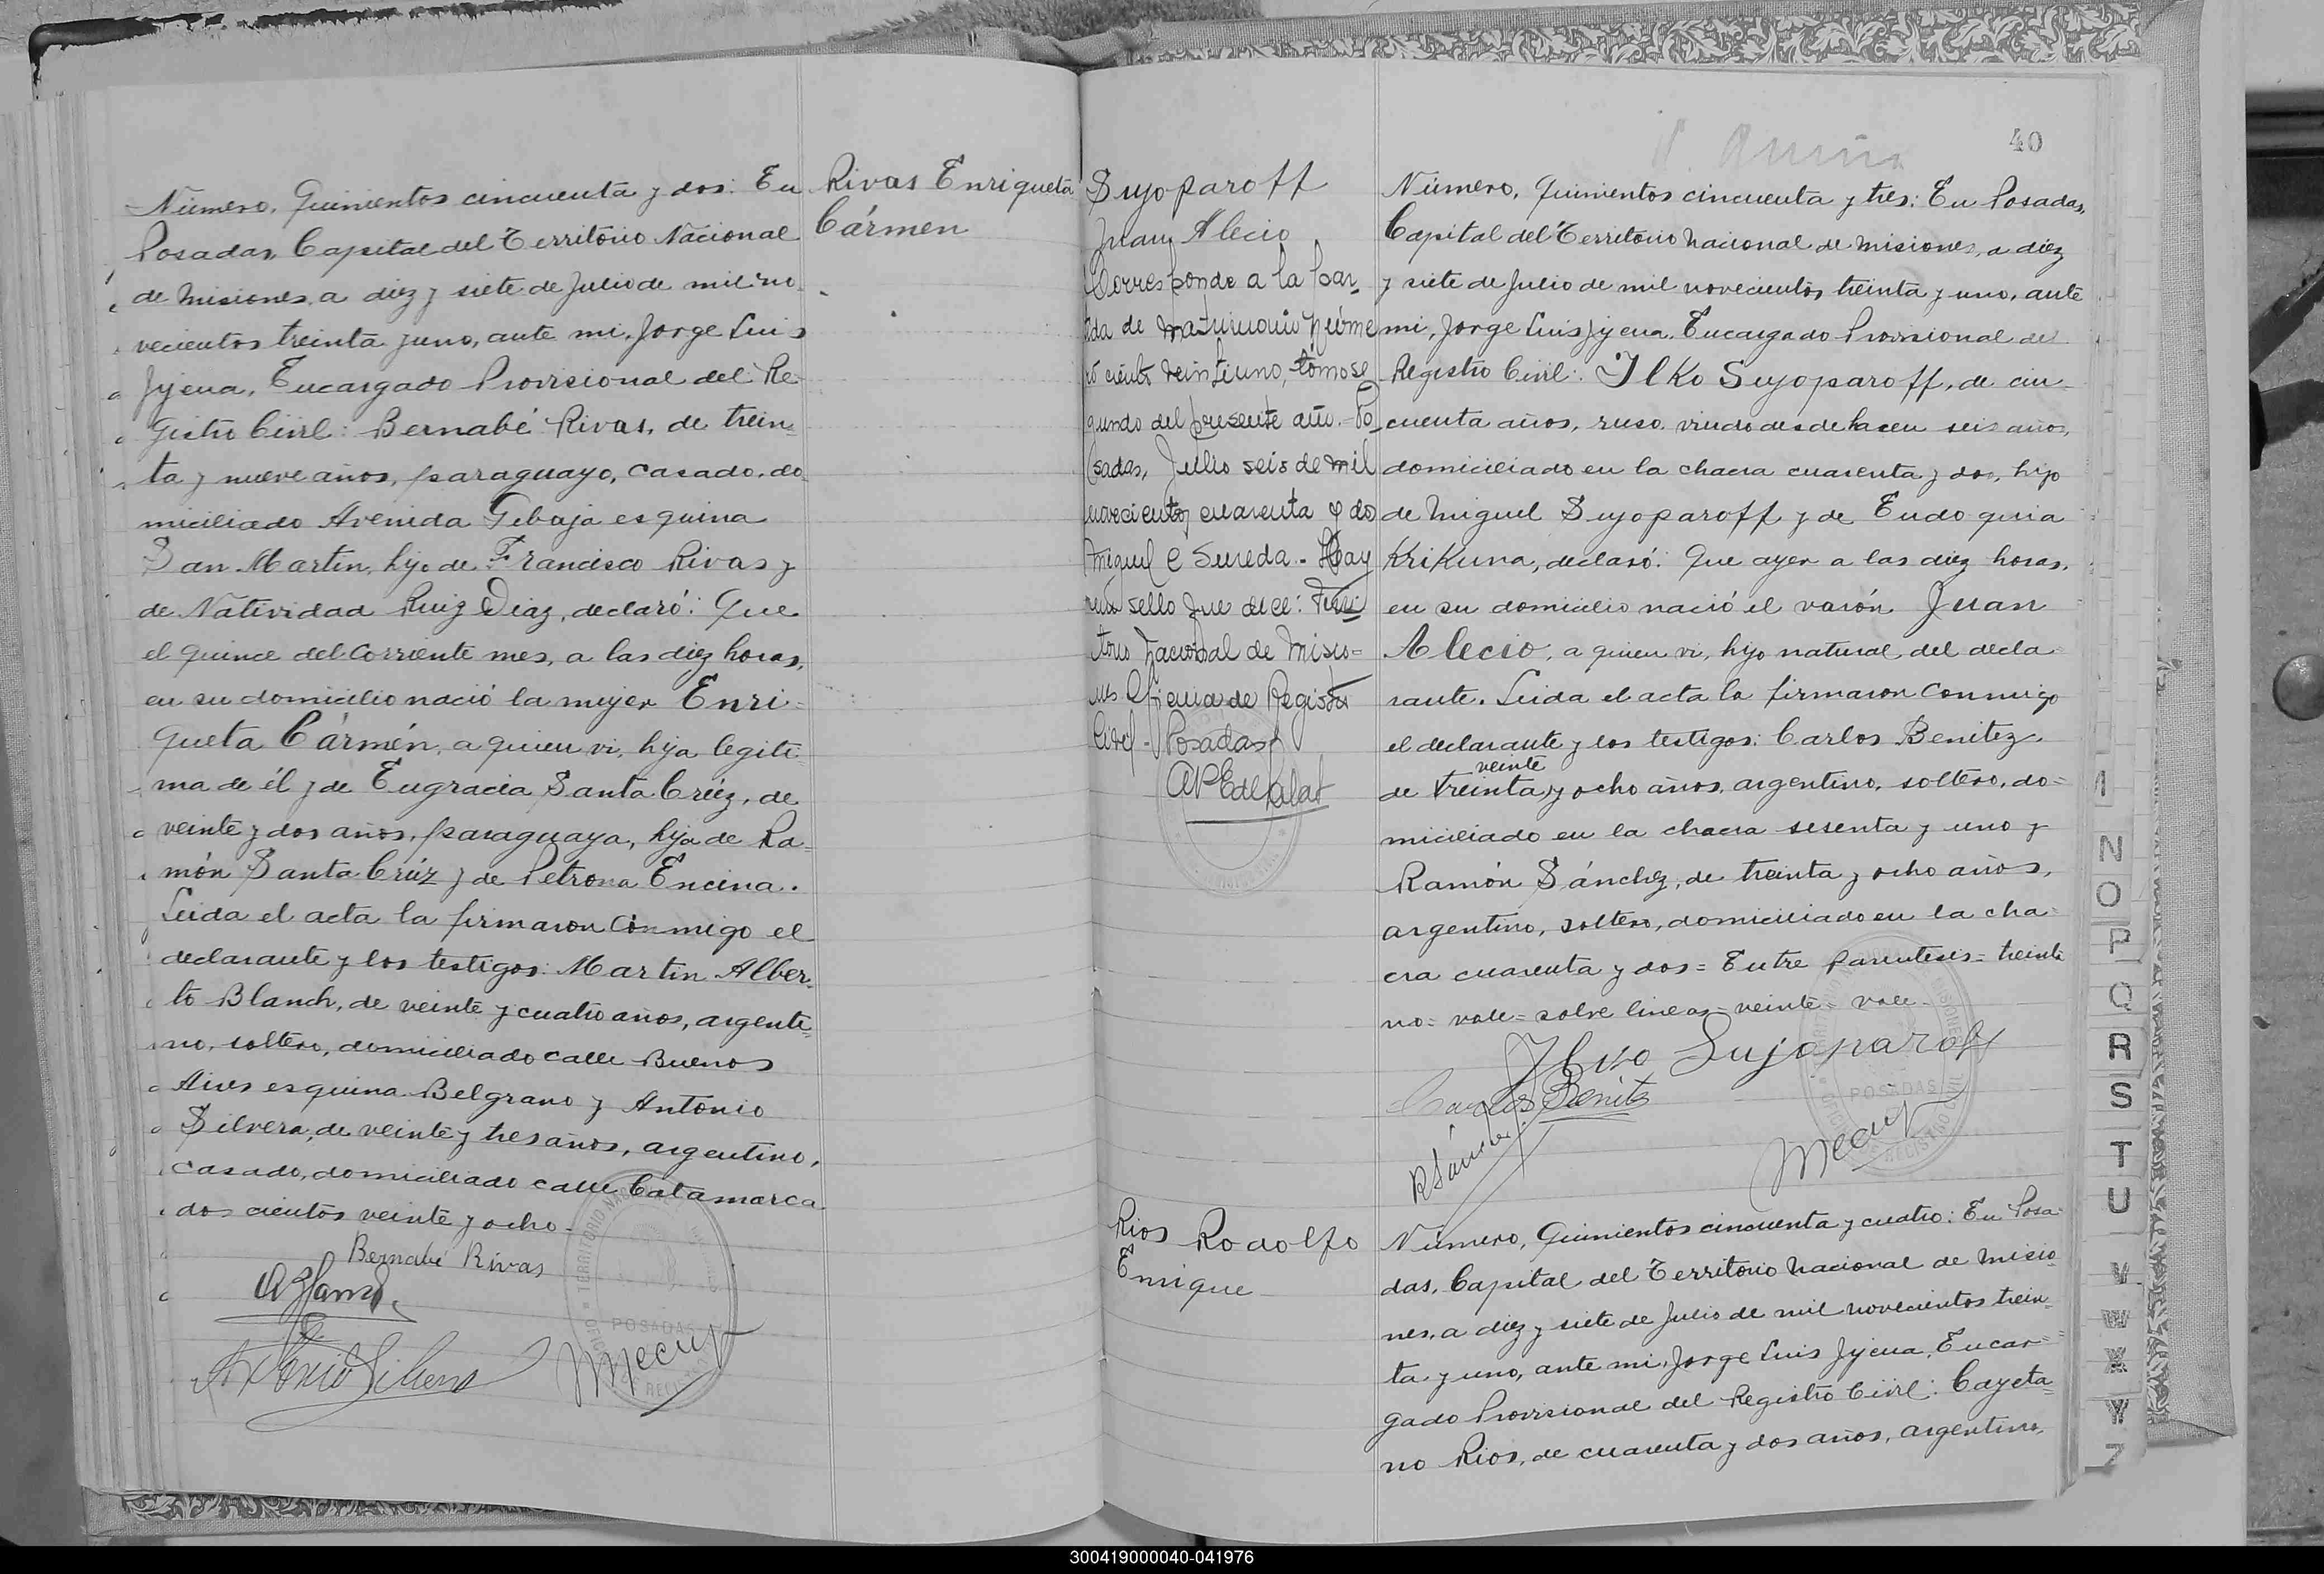 Número, Quinientos cincuenta y dos: En
Posadas, Capital del Territorio Nacional
de Misiones, a diez y siete de Julio de mil no
vecientos treinta y uno, ante mi, Jorge Luis
Jyena, Encargado Provisional del Re-
gistro Civil: Bernabé Rivas, de trein-
ta y nueve años, paraguayo, casado, do
miciliado Avenida Tebaja esquina
San Martin, hijo de Francisco Rivas y
de Natividad Ruiz Diaz, declaró: Que
el quince del corriente mes, a las diez horas,
en su domicilio nació la mujer Enri=
queta Cármen, a quien vi, hija legiti
ma de él y de Engracia Santa Crúz, de
veinte y dos años, paraguaya, hija de Ra=
món Santa Crúz y de Petrona Encina.
Leida el acta la firmaron conmigo el
declarante y los testigos: Martin Alber-
to Blanch, de veinte y cuatro años, argenti=
no, soltero, domiciliado calle Buenos
Aires esquina Belgrano y Antonio
Silvera, de veinte y tres años, argentino,
casado, domiciliado calle Catamarca
dos cientos veinte y ocho.
Bernabé Rivas
Antonio Silvera
POSADAS
Rivas Enriqueta
Cármen
Suyoparoff
Juan Alecio
Corresponde a la par-
tida de matrimonio núme
ro ciento veintiuno, tomo se
gundo del presente año. - Po
sadas, Julio seis de mil
novecientos cuarenta y dos
Miguel C Sureda. - Hay
un sello que dice: Terri
torio Nacional de Misio=
nes Oficina de Registro
Civil - Posadas
40
Número, Quinientos cincuenta y tres: En Posadas,
Capital del Territorio Nacional de Misiones, a diez
y siete de Julio de mil novecientos treinta y uno, ante
mi, Jorge Luis Jyena, Encargado Provisional del
Registro Civil: Ilko Suyoparoff, de cin-
cuenta años, ruso, viudo desde hacen seis años,
domiciliado en la chacra cuarenta y dos, hijo
de Miguel Suyoparoff y de Eudoquia
Krikuna, declaró: Que ayer a las diez horas,
en su domicilio nació el varón Juan
Alecio, a quien vi, hijo natural del decla
rante. Leida el acta la firmaron conmigo
el declarante y los testigos: Carlos Benitez,
veinte
de treinta y ocho años, argentino, soltero, do=
miciliado en la chacra sesenta y uno y
Ramón Sánchez, de treinta y ocho años,
argentino, soltero, domiciliado en la cha=
cra cuarenta y dos = Entre parentesis = treinta
no = vale = sobre lineas = veinte = vale.
Ilko Sujoparoff
Carlos Benitez
R Sánchez
POSADAS
Rios Rodolfo
Enrique
Número, Quinientos cincuenta y cuatro: En Posa=
das, Capital del Territorio Nacional de Misio
nes, a diez y siete de Julio de mil novecientos trein-
ta y uno, ante mi, Jorge Luis Jyena, Encar=
gado Provisional del Registro Civil: Cayeta=
no Rios, de cuarenta y dos años, argentino,
N
O
P
Q
R
S
T
U
V
W
X
Y
Z
300419000040-041976